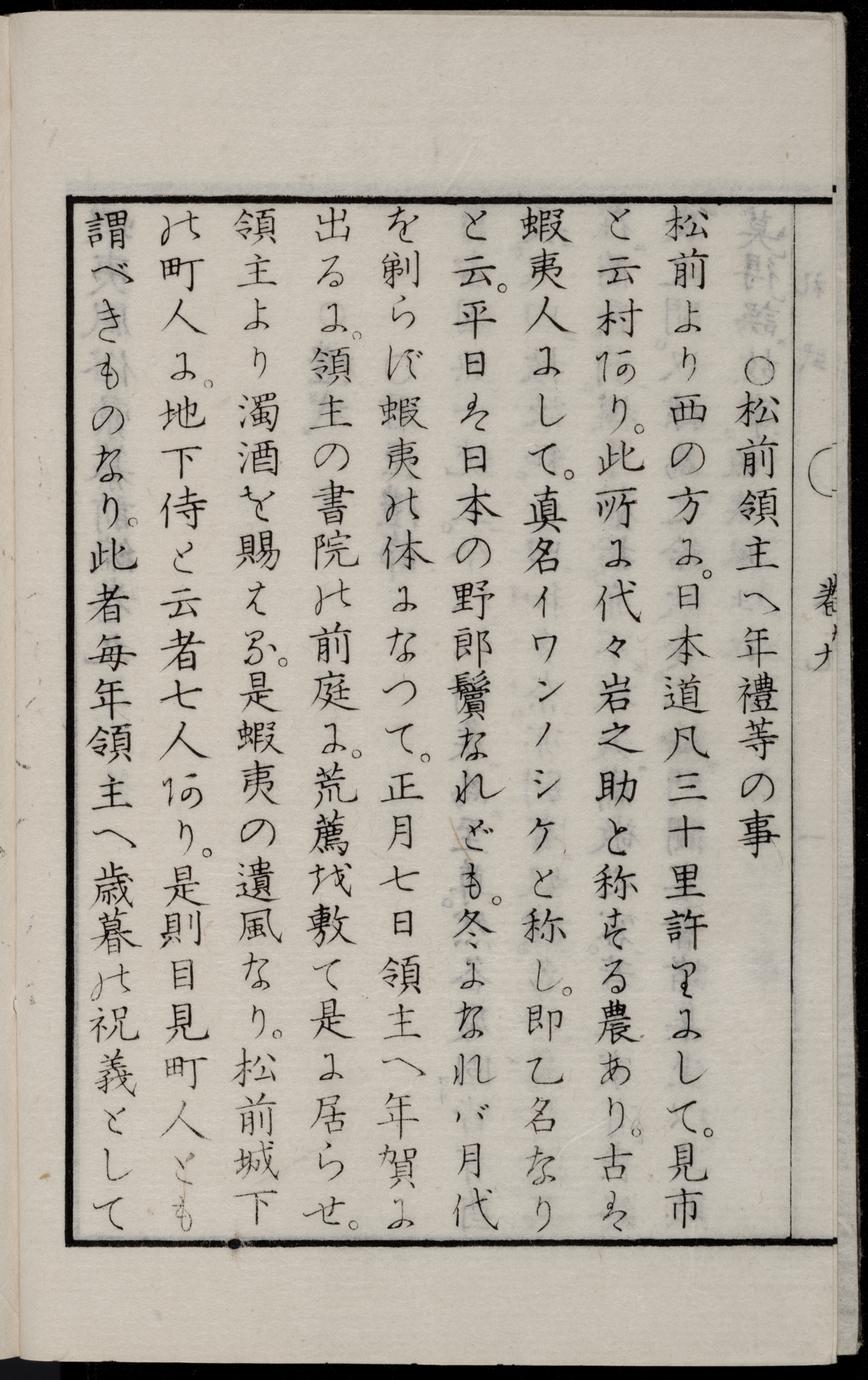 〇松前領主へ年禮等の事
松前より西の方に。日本道凡三十里許りにして。見市
と云村あり。此所に代々岩之助と称する農あり。古は
蝦夷人にして。真名イワンノシケと称し。即乙名なり
と云。平日は日本の野郎鬢なれども。冬になれバ月代
を剃らず蝦夷の体になつて。正月七日領主へ年賀に
出るに。領主の書院の前庭に。荒薦を敷て是に居らせ。
領主より濁酒を賜はる。是蝦夷の遺風なり。松前城下
の町人に。地下侍と云者七人あり。是則目見町人とも
謂べきものなり。此者毎年領主へ歳暮の祝義として